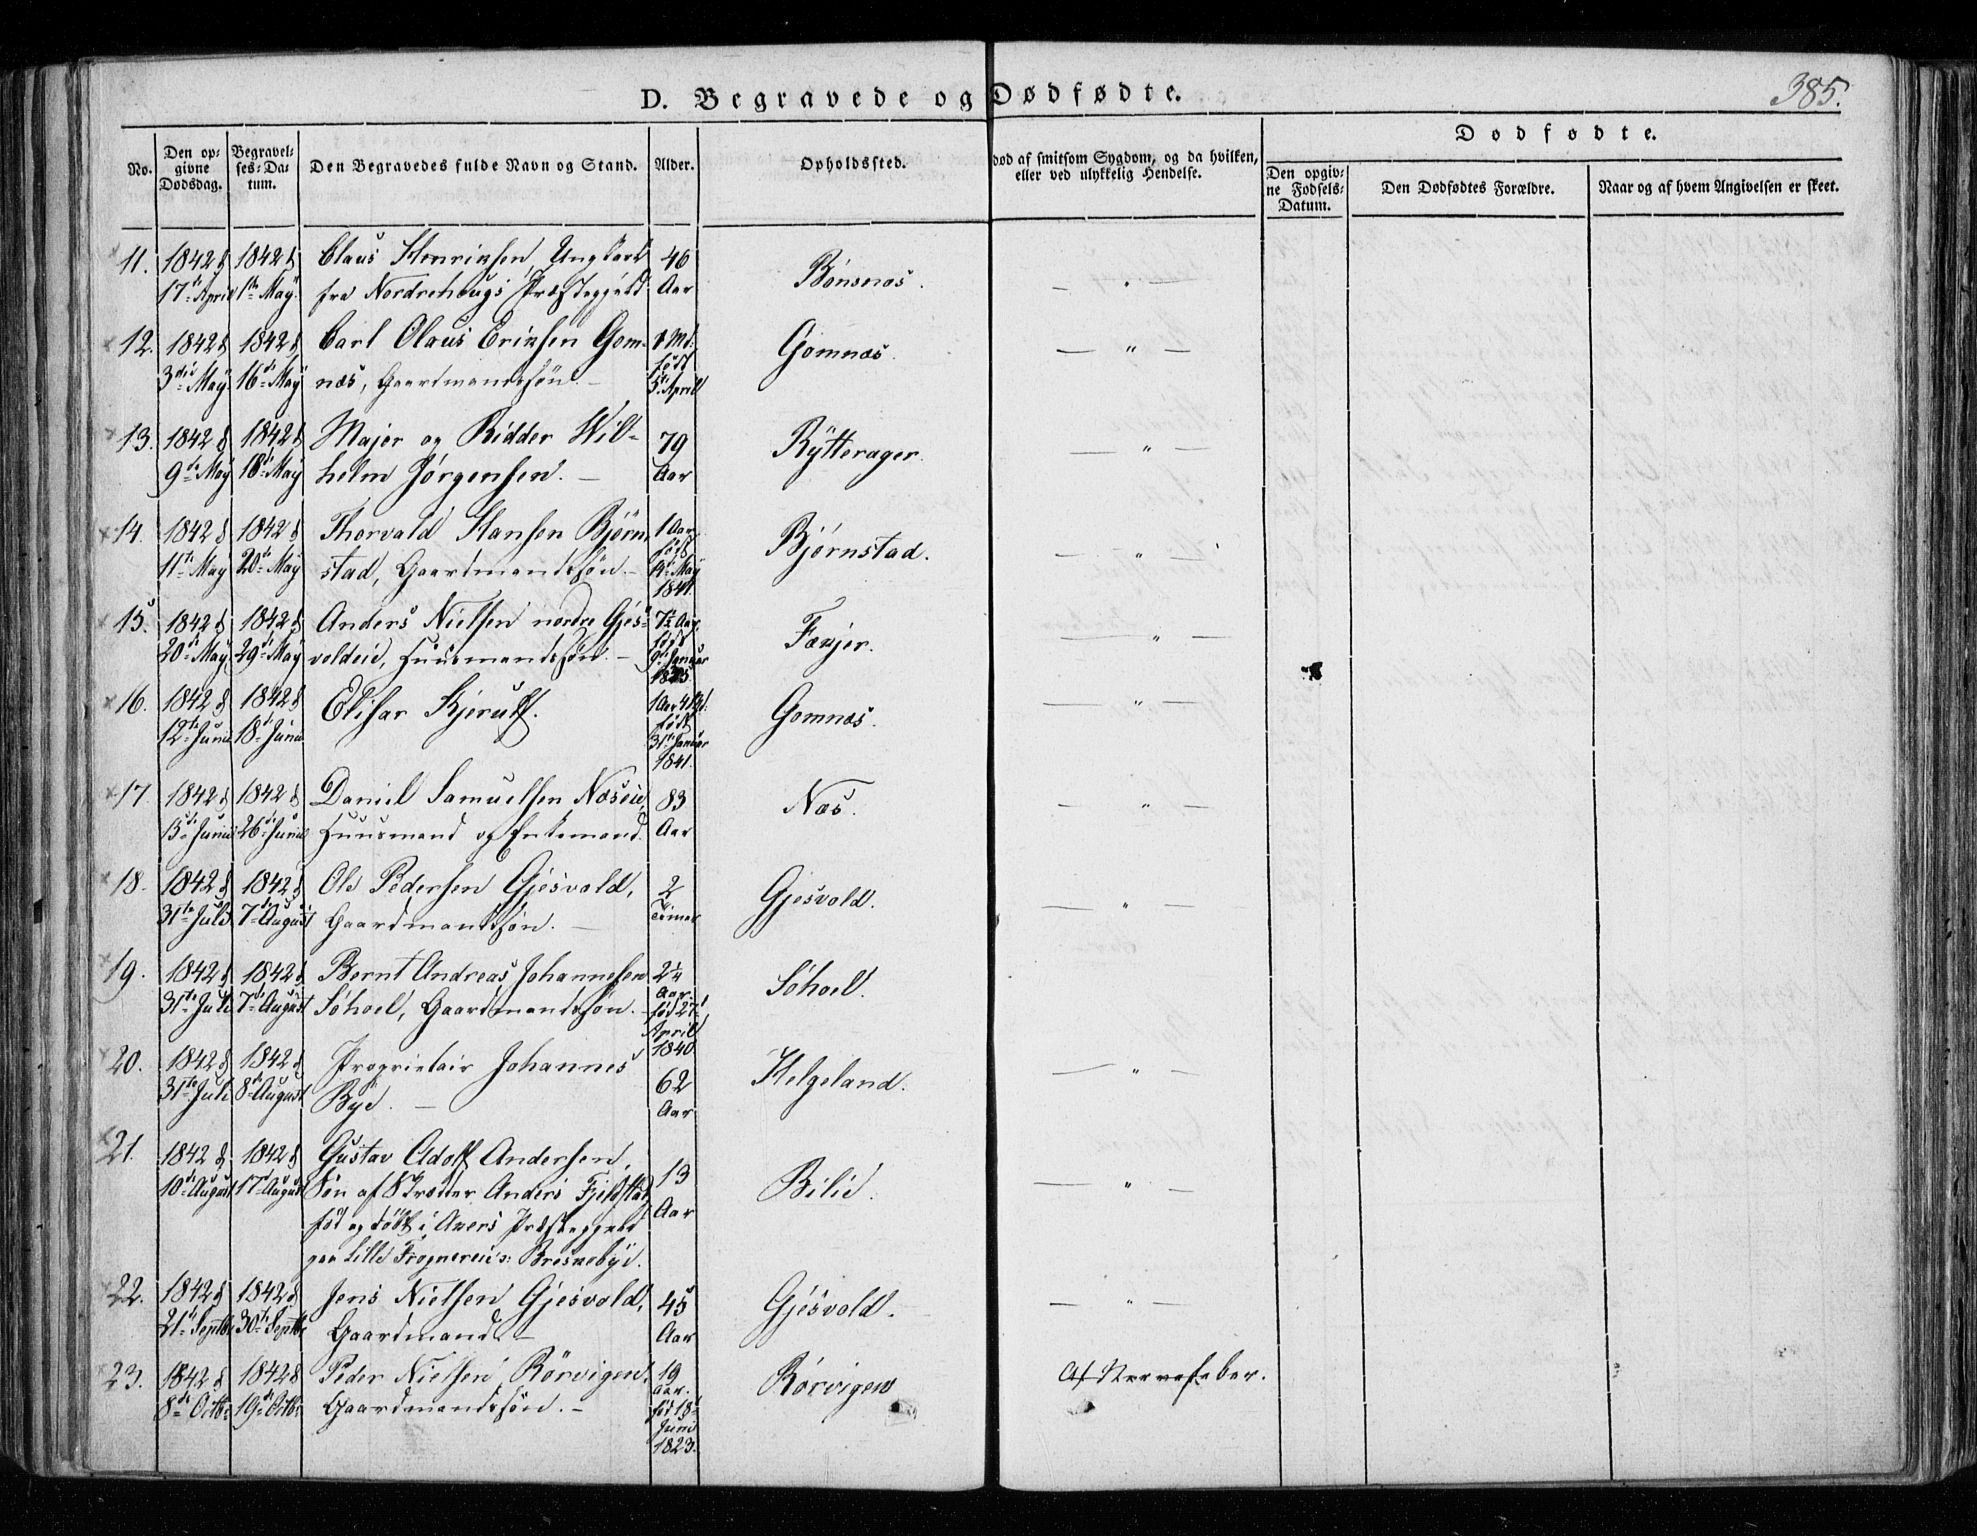 D. Begravede og Dødfødte.
385.
No.
Den op-
givne
Dødsdag.
Begravel-
ses-Da-
tum.
Den Begravedes fulde Navn og Stand.
Alder.
Opholdssted.
død af smitsom Sygdom, og da hvilken,
eller ved ulykkelig Hendelse.
Dødfødte.
Den opgiv-
ne Fødsels-
Datum.
Den Dødfødtes Forældre.
Naar og af hvem Angivelsen er skeet.
11. 1842 d 1842 d Claus Henriksen, Ungkarl 46 Bønsnes. — " —
17de April 1ste May fra Nordrehougs Præstegjeld Aar
12. 1842 d 1842 d Carl Olaus Eriksen Gom- 1 Md. Gomnæs. — " —
3die May 16de May næs, Gaardmandssøn. — født
5te April
13. 1842 d 1842 d Major og Ridder Wil- 79 Rytterager. — " —
9de May 18de May helm Jørgensen. — Aar
14. 1842 d 1842 d Thorvald Hansen Bjørn- 1 Aar Bjørnstad. — " —
11te May 20de May stad, Gaardmandssøn. — født
May
1841.
15. 1842 d 1842 d Anders Nielsen nordre Gjes- 7½ Aar, Færjer. — " —
20de May 29de May voldeie, Huusmandssøn. — født
9de Januar
1835.
16. 1842 d 1842 d Elisar Kjerulf. 1 Aar 4 Md. Gomnæs. — " —
12te Junii 18de Junii født
31te Januar
1841.
17. 1842 d 1842 d Daniel Samuelsen Næseie, 83 Næs. — " —
15de Junii 26de Junii Huusmand og Enkemand. Aar
18. 1842 d 1842 d Ole Pedersen Gjesvold, 2 Gjesvold. — " —
31te Juli 7de August Gaardmandssøn. — Timer
19. 1842 d 1842 d Bernt Andreas Johannesen 2¼ Søhoel.
31te Juli 7de August Søhoel, Gaardmandssøn. — Aar.
fød 27de
April
1840
20. 1842 d 1842 d Proprietair Johannes 62 Helgeland. — " —
31te Juli 8de August Bye. — Aar
21. 1842 d 1842 d Gustav Adolf Andersen, 13 Bilie. — " —
10de August 17de August Søn af Skrædder Anders Fjeldstad, Aar
fød og døbt i Akers Præstegjeld
paa Lille Frogner
22. 1842 d 1842 d Jens Nielsen Gjesvold, 45 Gjesvold. — " —
21de Septbr 30te Septbr Gaardmand. — Aar
23. 1842 d 1842 d Peder Nielsen Rörvigen, 19 Rörvigen Af Nervefeber.
8de Octbr 19de Octbr Gaardmandssøn. — Aar.
fød 18de
Juni
1823.